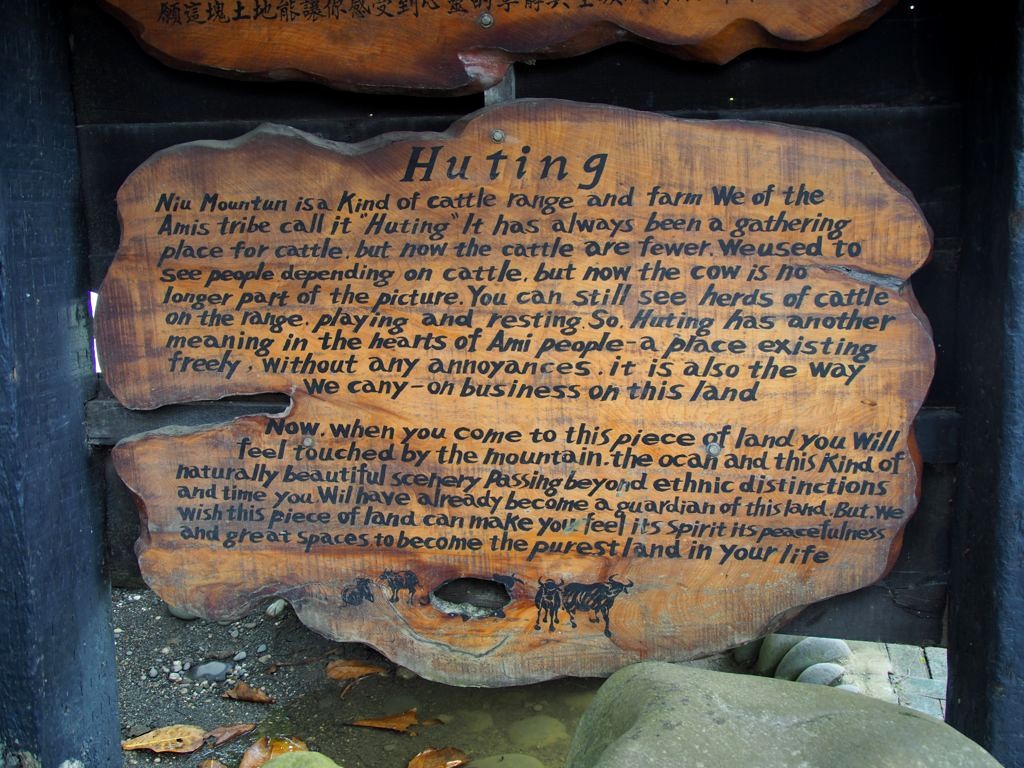 願這塊土地能讓你感受到心靈的
Huting
Niu Mountun is a Kind of cattle range and farm We of the
Amis tribe call it "Huting" It has always been a gathering
place for cattle, but now the cattle are fewer. Weused to
see people depending on cattle, but now the cow is no
longer part of the picture. You can still see herds of cattle
on the range, playing and resting. So, Huting has another
meaning in the hearts of Ami people-a place existing
freely, without any annoyances. it is also the way
We cany-on business on this land
Now, when you come to this piece of land you Will
feel touched by the mountain. the ocah and this Kind of
naturally beautiful scehery Passing beyond ethnic distinctions
and time you Wil have already become a guardian of this land. But. We
wish this piece of land can make you feel its Spirit its peacefulness
and great spaces to become the purest land in your life